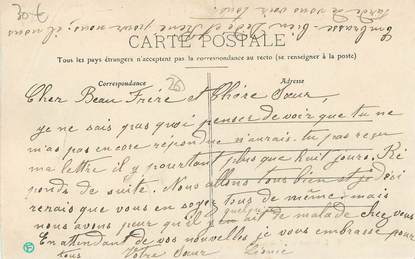 CARTE POSTALE
Tous les pays étrangers n'acceptent pas la correspondance au recto (se renseigner à la poste)
Correspondance
Adresse
20
Cher Beau Frère et Chère Sœur,
je ne sais pas quoi penser de voir que tu ne
m'as pas encore repondue n'aurais tu pas reçu
ma lettre il y a pourtant plus que huit jours. Ré
ponds de suite. Nous allons tous bien et je dési
rerais que vous en soyez tous de même, mais
nous avons peur qu'il y en ait de malade chez vous
quelqu'un
En attendant de vos nouvelles je vous embrasse pour
tous Votre Sœur
Embrasse bien Dédé et René pour nous, il nous
tarde de vous voir tous.